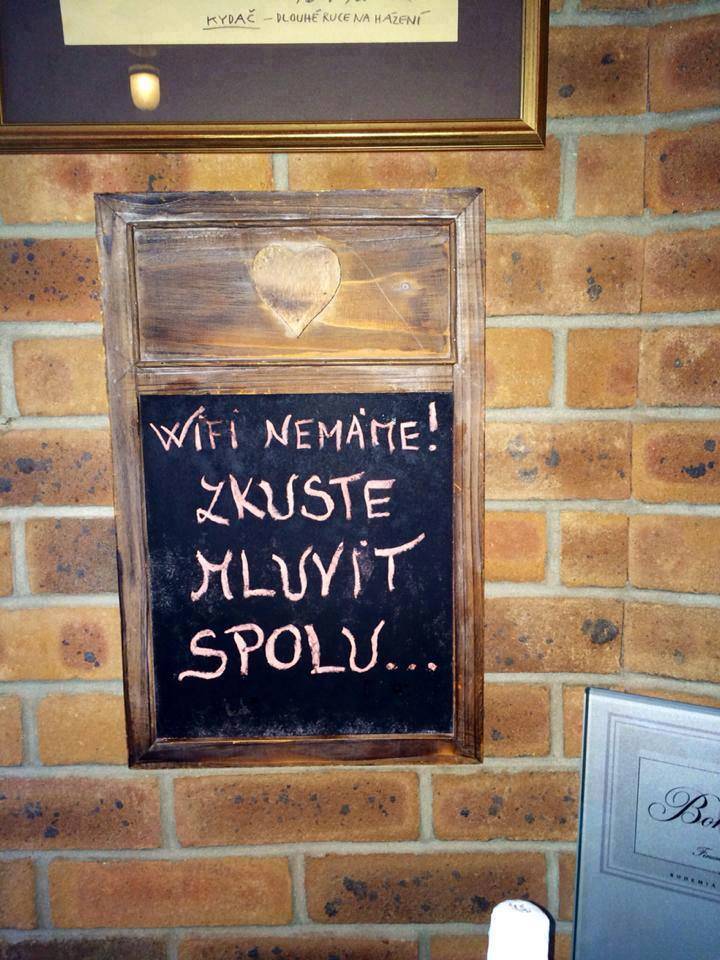 KYDAČ – DLOUHÉ RUCE NA HÁZENÍ
WIFI NEMÁME!
ZKUSTE
MLUVIT
SPOLU...
BOHEMIA